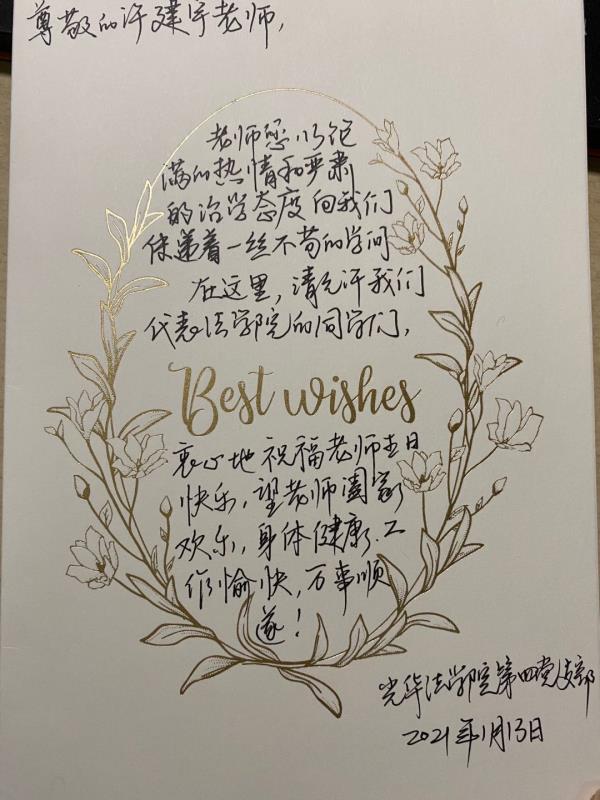 尊敬的许建宇老师,
老师您以饱
满的热情和严肃
的治学态度向我们
传递着一丝不苟的学问
在这里,请允许我们
代表法学院的同学们,
Best wishes
衷心地祝福老师生日
快乐,望老师阖家
欢乐,身体健康.工
作愉快,万事顺
遂!
光华法学院第四党支部
2021年1月13日